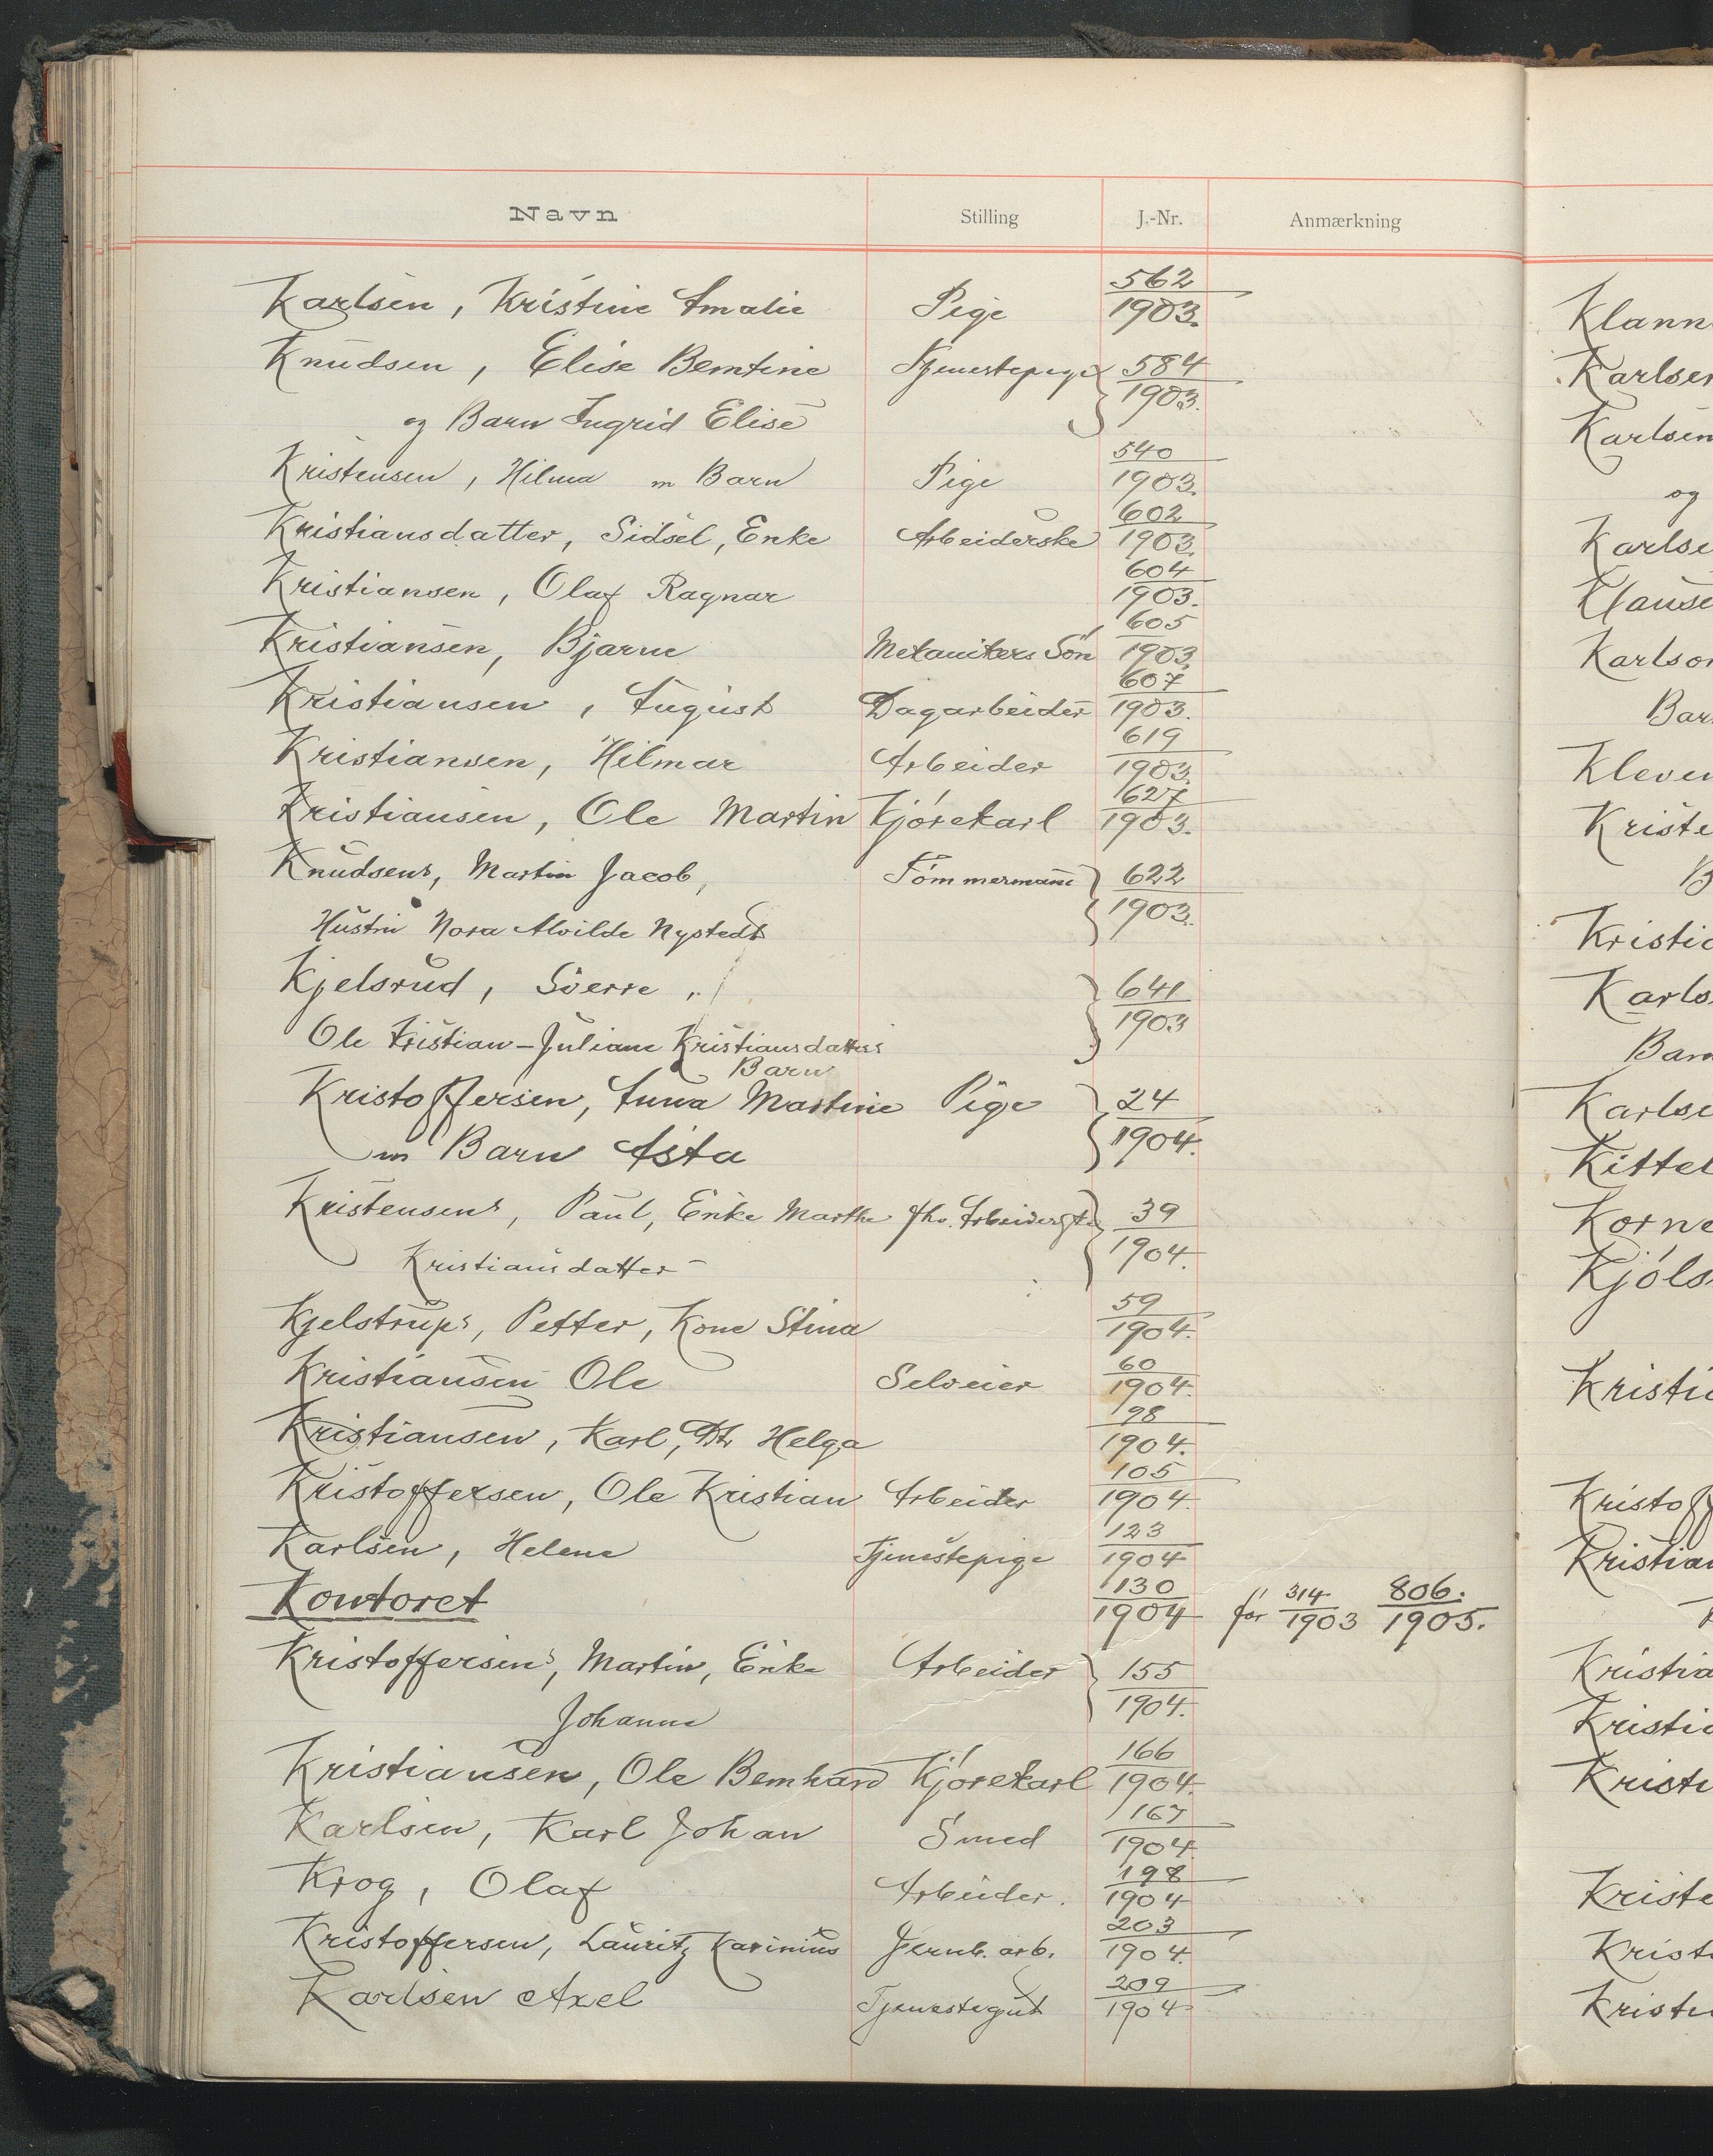 Navn Stilling J.-Nr. Anmærkning
Karlsen, Kristine Amalie Pige 562/1903.
Knudsen, Elise Berntine Tjenestepige 584/1903.
og Barn Ingrid Elise
Kristensen, Hilma m Barn Pige 540/1903.
Kristiansdatter, Sidsel, Enke Arbeiderske 602/1903.
Kristiansen, Olaf Ragnar 604/1903.
Kristiansen, Bjarne Mekanikers Sön 605/1903.
Kristiansen, August Dagarbeider 607/1903.
Kristiansen, Hilmar Arbeider 619/1903.
Kristiansen, Ole Martin Kjórekarl 627/1903.
Knudsens, Martin Jacob, Tömmermann 622/1903.
Hustru Nora Alvilde Nystedt
Kjelsrud, Sverre, 641/1903
Ole Kristian-Juliane Kristiansdatters
Barn
Kristoffersen, Anna Martine Pige 24/1904.
m Barn Asta
Kristensens, Paul, Enke Marthe fhv. 39/1904.
Kristiansdatter
Kjelstrups, Petter, Kone Stina 59/1904.
Kristiansen Ole Selveier 60/1904.
Kristiansen, Karl, Dtr Helga 98/1904.
Kristoffersen, Ole Kristian Arbeider 105/1904.
Karlsen, Helene Tjenestepige 123/1904
Kontoret 130/1904 før 314/1903 806./1905.
Kristoffersens, Martin, Enke Arbeider 155/1904.
Johanne
Kristiansen, Ole Bernhard Kjórekarl 166/1904.
Karlsen, Karl Johan Smed 167/1904.
Krog, Olaf Arbeider. 198/1904
Kristoffersen, Lauritz Karinius Jernb. arb. 203/1904.
Karlsen Axel Tjenestegut 209/1904
Klann
Karlsen
Karlsen
og
Karlse
Clause
Karlson
Bar
Kleven
Kriste
B
Kristia
Karls
Barn
Karlse
Kittel
Korne
Kjóls
Kristia
Kristoff
Kristian
Kristia
Kristia
Kristi
Kriste
Krist
Kriste